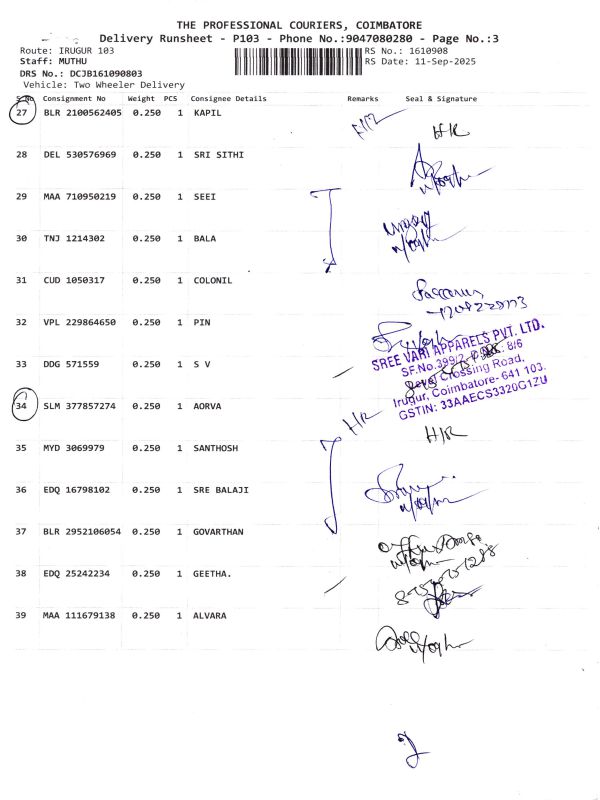 THE PROFESSIONAL COURIERS, COIMBATORE
Delivery Runsheet - P103 - Phone No.:9047080280 - Page No.:3
Route: IRUGUR 103
RS No.: 1610908
Staff: MUTHU
RS Date: 11-Sep-2025
DRS No.: DCJB161090803
Vehicle: Two Wheeler Delivery
S.No Consignment No Weight PCS Consignee Details Remarks Seal & Signature
27 BLR 2100562405 0.250 1 KAPIL
H/R
28 DEL 530576969 0.250 1 SRI SITHI
29 MAA 710950219 0.250 1 SEEI
30 TNJ 1214302 0.250 1 BALA
31 CUD 1050317 0.250 1 COLONIL
32 VPL 229864650 0.250 1 PIN
SREE VARI APPARELS PVT. LTD.
33 DDG 571559 0.250 1 S V
Crossing Road,
Irugur, Coimbatore- 641 103.
GSTIN: 33AAECS3320G1ZU
34 SLM 377857274 0.250 1 AORVA
H/R
H/R
35 MYD 3069979 0.250 1 SANTHOSH
36 EDQ 16798102 0.250 1 SRE BALAJI
37 BLR 2952106054 0.250 1 GOVARTHAN
38 EDQ 25242234 0.250 1 GEETHA.
39 MAA 111679138 0.250 1 ALVARA